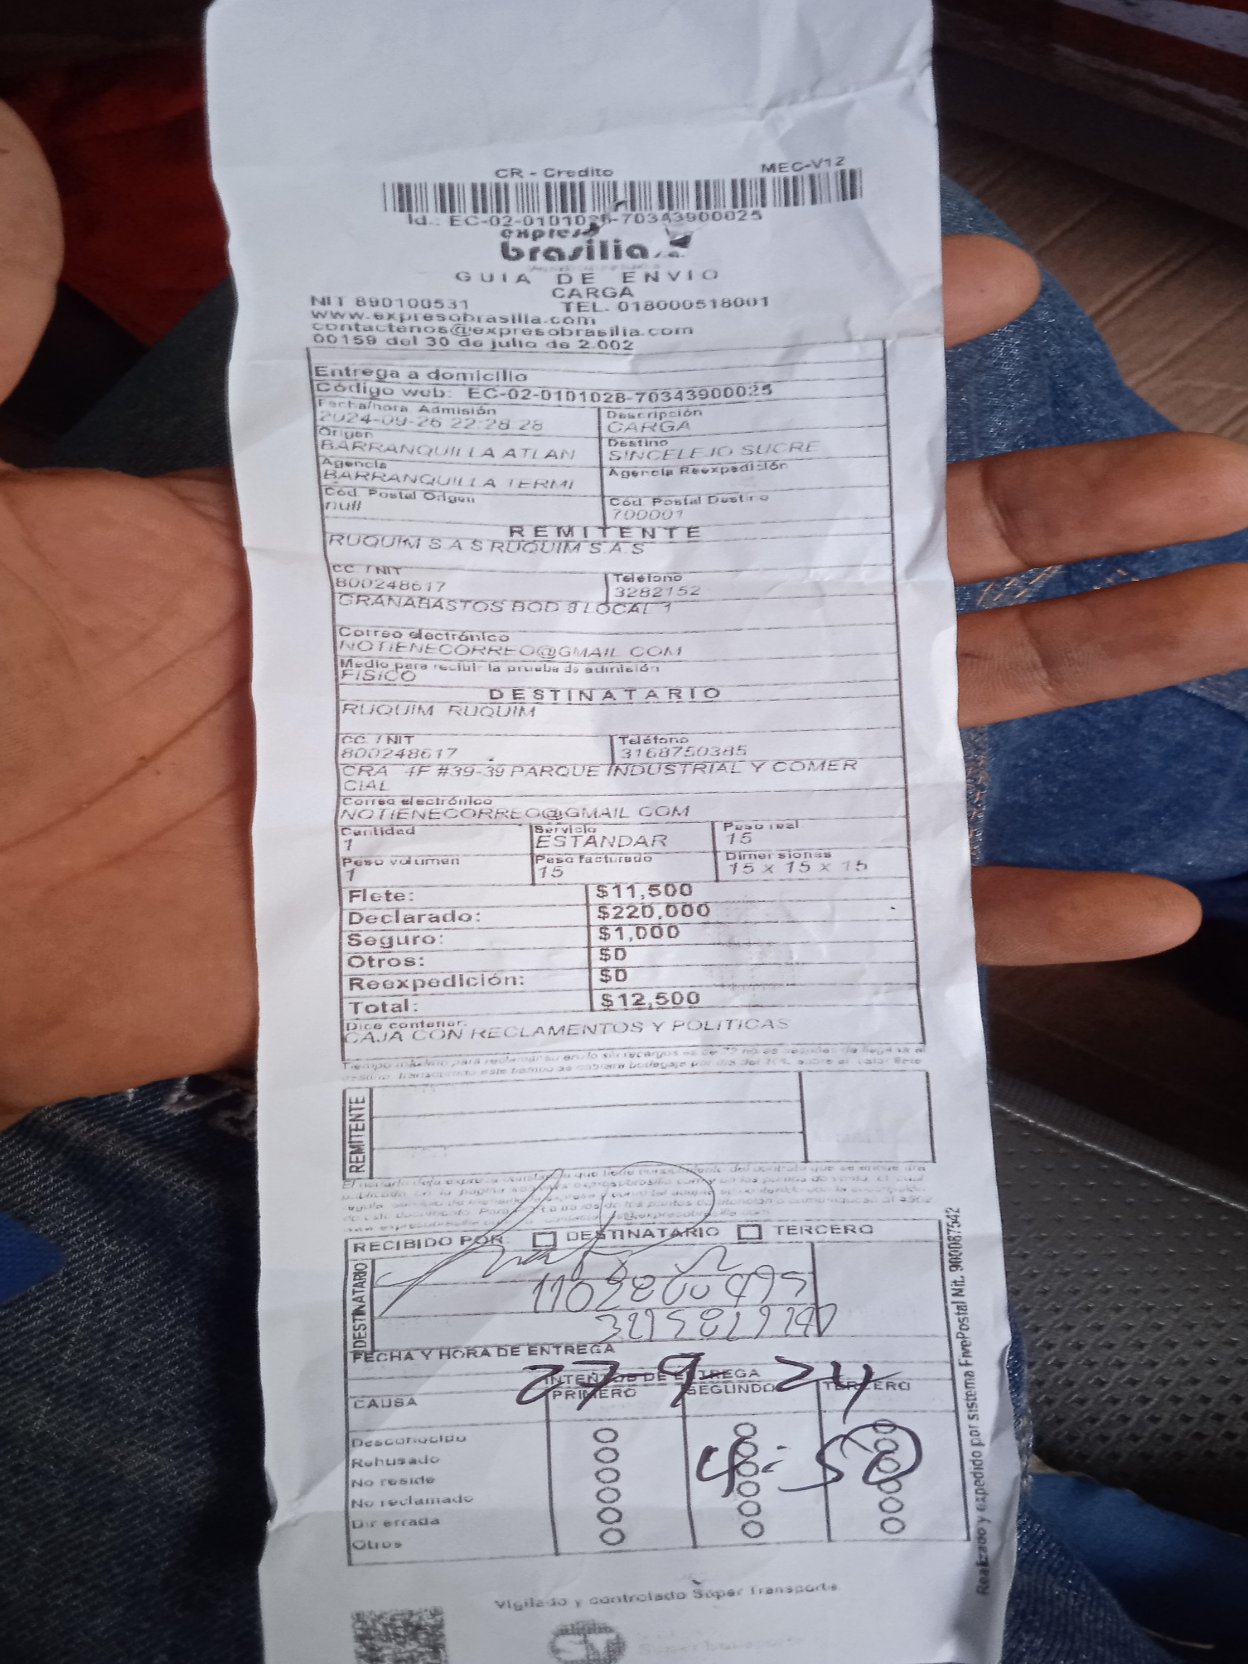 CR - Credito MEC-V12
Id.: EC-02-0101028-70343900025
expreso
brasilia s.a.
GUIA DE ENVIO
CARGA
NIT 890100531 TEL. 018000518001
www.expresobrasilia.com
contactenos@expresobrasilia.com
00159 del 30 de julio de 2.002
Entrega a domicilio
Código web: EC-02-0101028-70343900025
Fecha/hora Admisión Descripción
2024-09-26 22:28:28 CARGA
Origen Destino
BARRANQUILLA ATLAN SINCELEJO SUCRE
Agencia Agencia Reexpedición
BARRANQUILLA TERMI
Cód. Postal Origen Cód. Postal Destino
null 700001
REMITENTE
RUQUIM S A S RUQUIM S.A.S
CC / NIT Teléfono
800248617 3282152
GRANABASTOS BOD 8 LOCAL 1
Correo electrónico
NOTIENECORREO@GMAIL.COM
Medio para recibir la prueba de admisión
FISICO
DESTINATARIO
RUQUIM RUQUIM
CC / NIT Teléfono
800248617 3168750385
CRA 4F #39-39 PARQUE INDUSTRIAL Y COMER
CIAL
Correo electrónico
NOTIENECORREO@GMAIL.COM
Cantidad Servicio Peso real
1 ESTANDAR 15
Peso volumen Peso facturado Dimensiones
1 15 15 x 15 x 15
Flete: $11,500
Declarado: $220,000
Seguro: $1,000
Otros: $0
Reexpedición: $0
Total: $12,500
Dice contener:
CAJA CON RECLAMENTOS Y POLITICAS
REMITENTE
RECIBIDO POR: DESTINATARIO TERCERO
DESTINATARIO
FECHA Y HORA DE ENTREGA
27 9 24
INTENTOS DE ENTREGA
CAUSA PRIMERO SEGUNDO TERCERO
4:50
Desconocido
Rehusado
No reside
No reclamado
Dir errada
Otros
Realizado y expedido por sistema FivePostal Nit. 900087542
Vigilado y controlado Súper Transporte